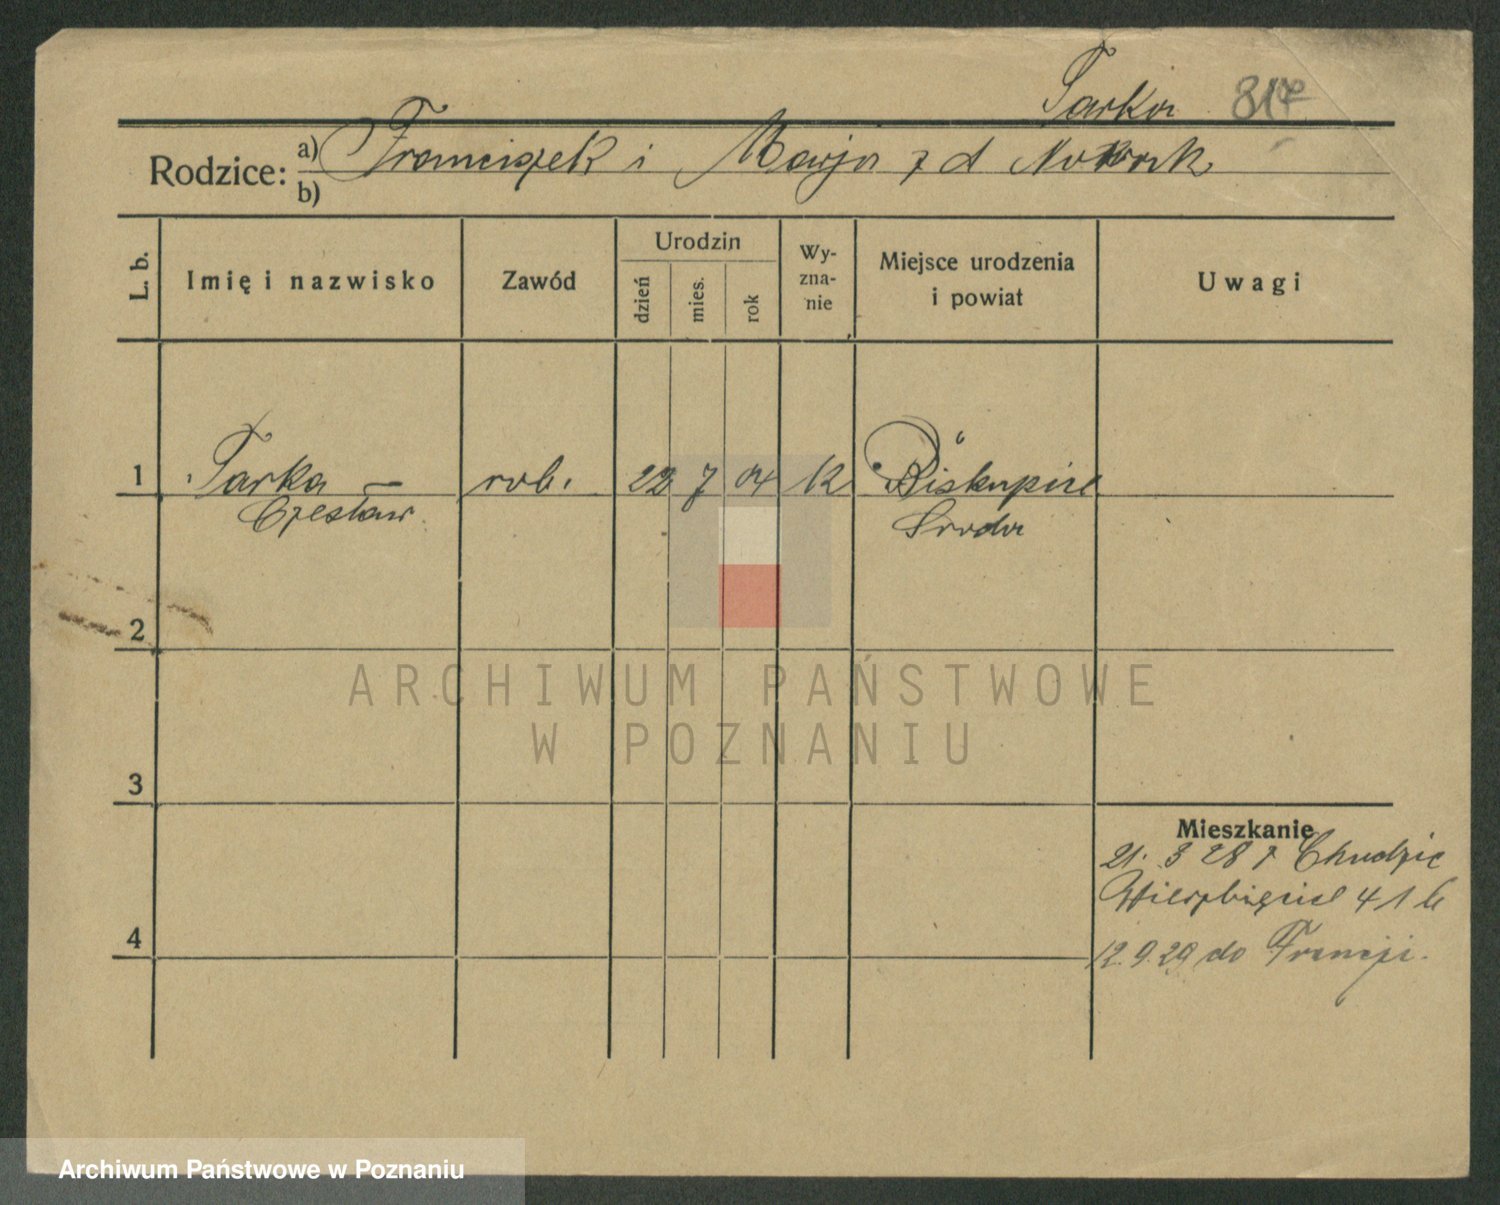 Tarka 817
Rodzice: a) Franciszek i Marja z d Nowak
b)
L. b. Imię i nazwisko Zawód Urodzin dzień mies. rok Wyznanie Miejsce urodzenia i powiat Uwagi
1 Tarka – rob. 22 7 04 K Biskupice
Czesław Środa
2
ARCHIWUM PAŃSTWOWE
W POZNANIU
3
Mieszkanie
21. 3 28 z Chudzic
Wierzbięcice 41 b
4
12.9.29 do Francji.
Archiwum Państwowe w Poznaniu